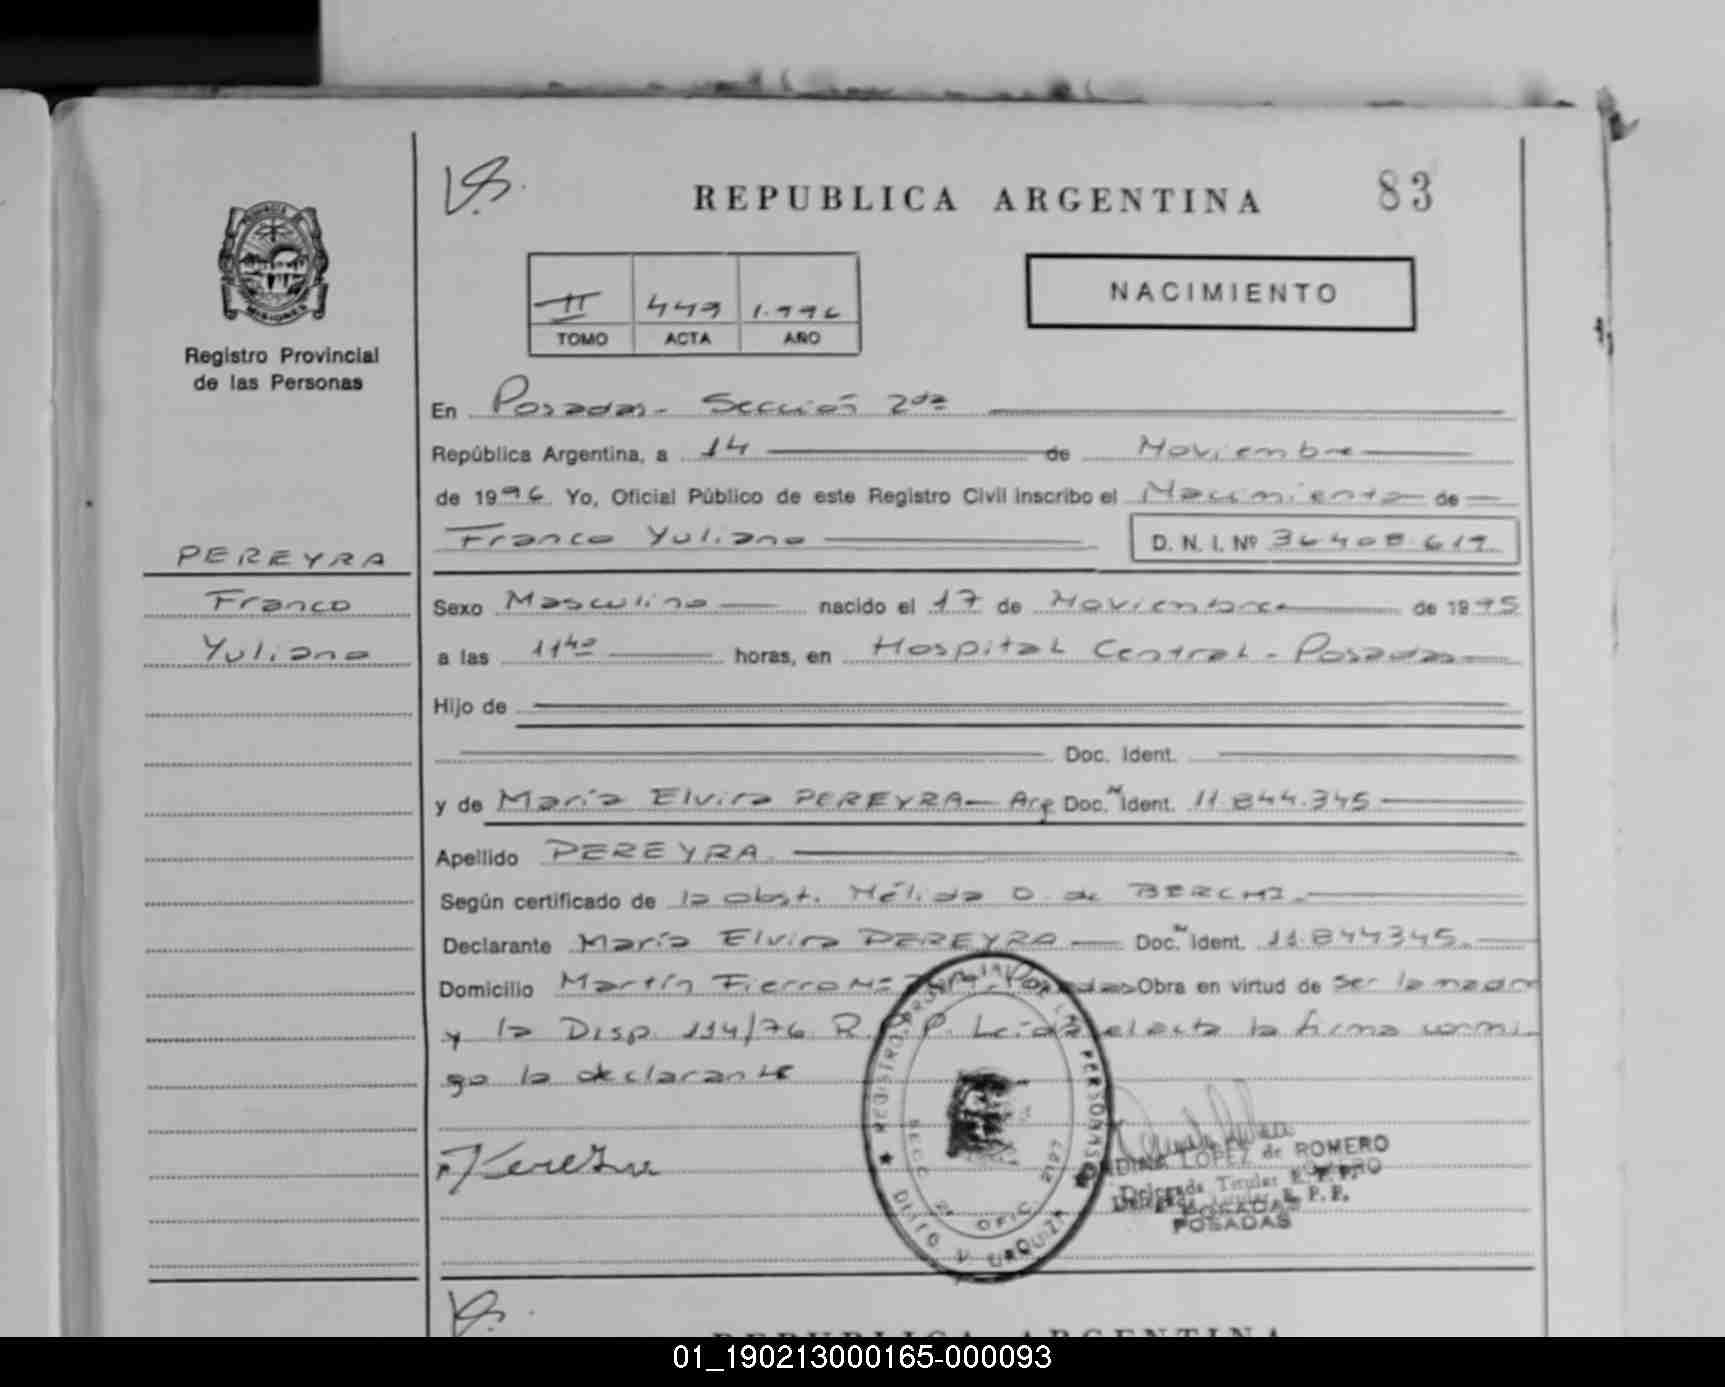 REPUBLICA ARGENTINA
83
MISIONES
Registro Provincial
de las Personas
II 449 1.996
TOMO ACTA AÑO
NACIMIENTO
En Posadas - Sección 2da
República Argentina, a 14 de Noviembre
de 1996 Yo, Oficial Público de este Registro Civil inscribo el Nacimiento de
Franco Yuliano D. N. I. Nº 36.408.619
PEREYRA
Franco
Yuliano
Sexo Masculino nacido el 17 de Noviembre de 1995
a las 11 40 horas, en Hospital Central - Posadas
Hijo de
Doc. Ident.
y de María Elvira PEREYRA - Arg Doc. N Ident. 11.844.345
Apellido PEREYRA
Según certificado de la obst. Nélida O. de
Declarante María Elvira PEREYRA Doc. N Ident. 11.844345.
Domicilio Martín Fierro Obra en virtud de ser la madre
y la Disp. 114/76 R. P. P. Leída el acta la firma conmi
go la declarante
REGISTRO PROVINCIAL DE LAS PERSONAS
SECC 2ª OFIC 2127
DPTO V URQUIZA
LOPEZ de ROMERO
Delegada Titular R. P. P.
POSADAS
REPUBLICA ARGENTINA
01_190213000165-000093